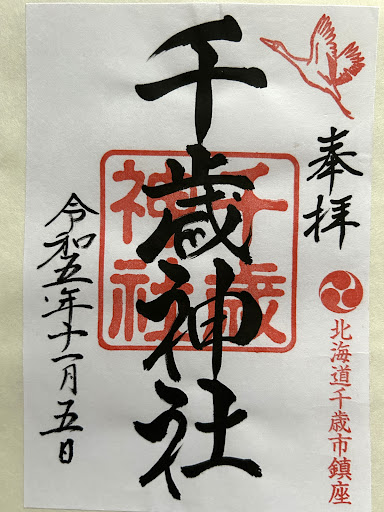 奉拝
北海道千歳市鎮座
千歳神社
千歳
神社
令和五年十一月五日